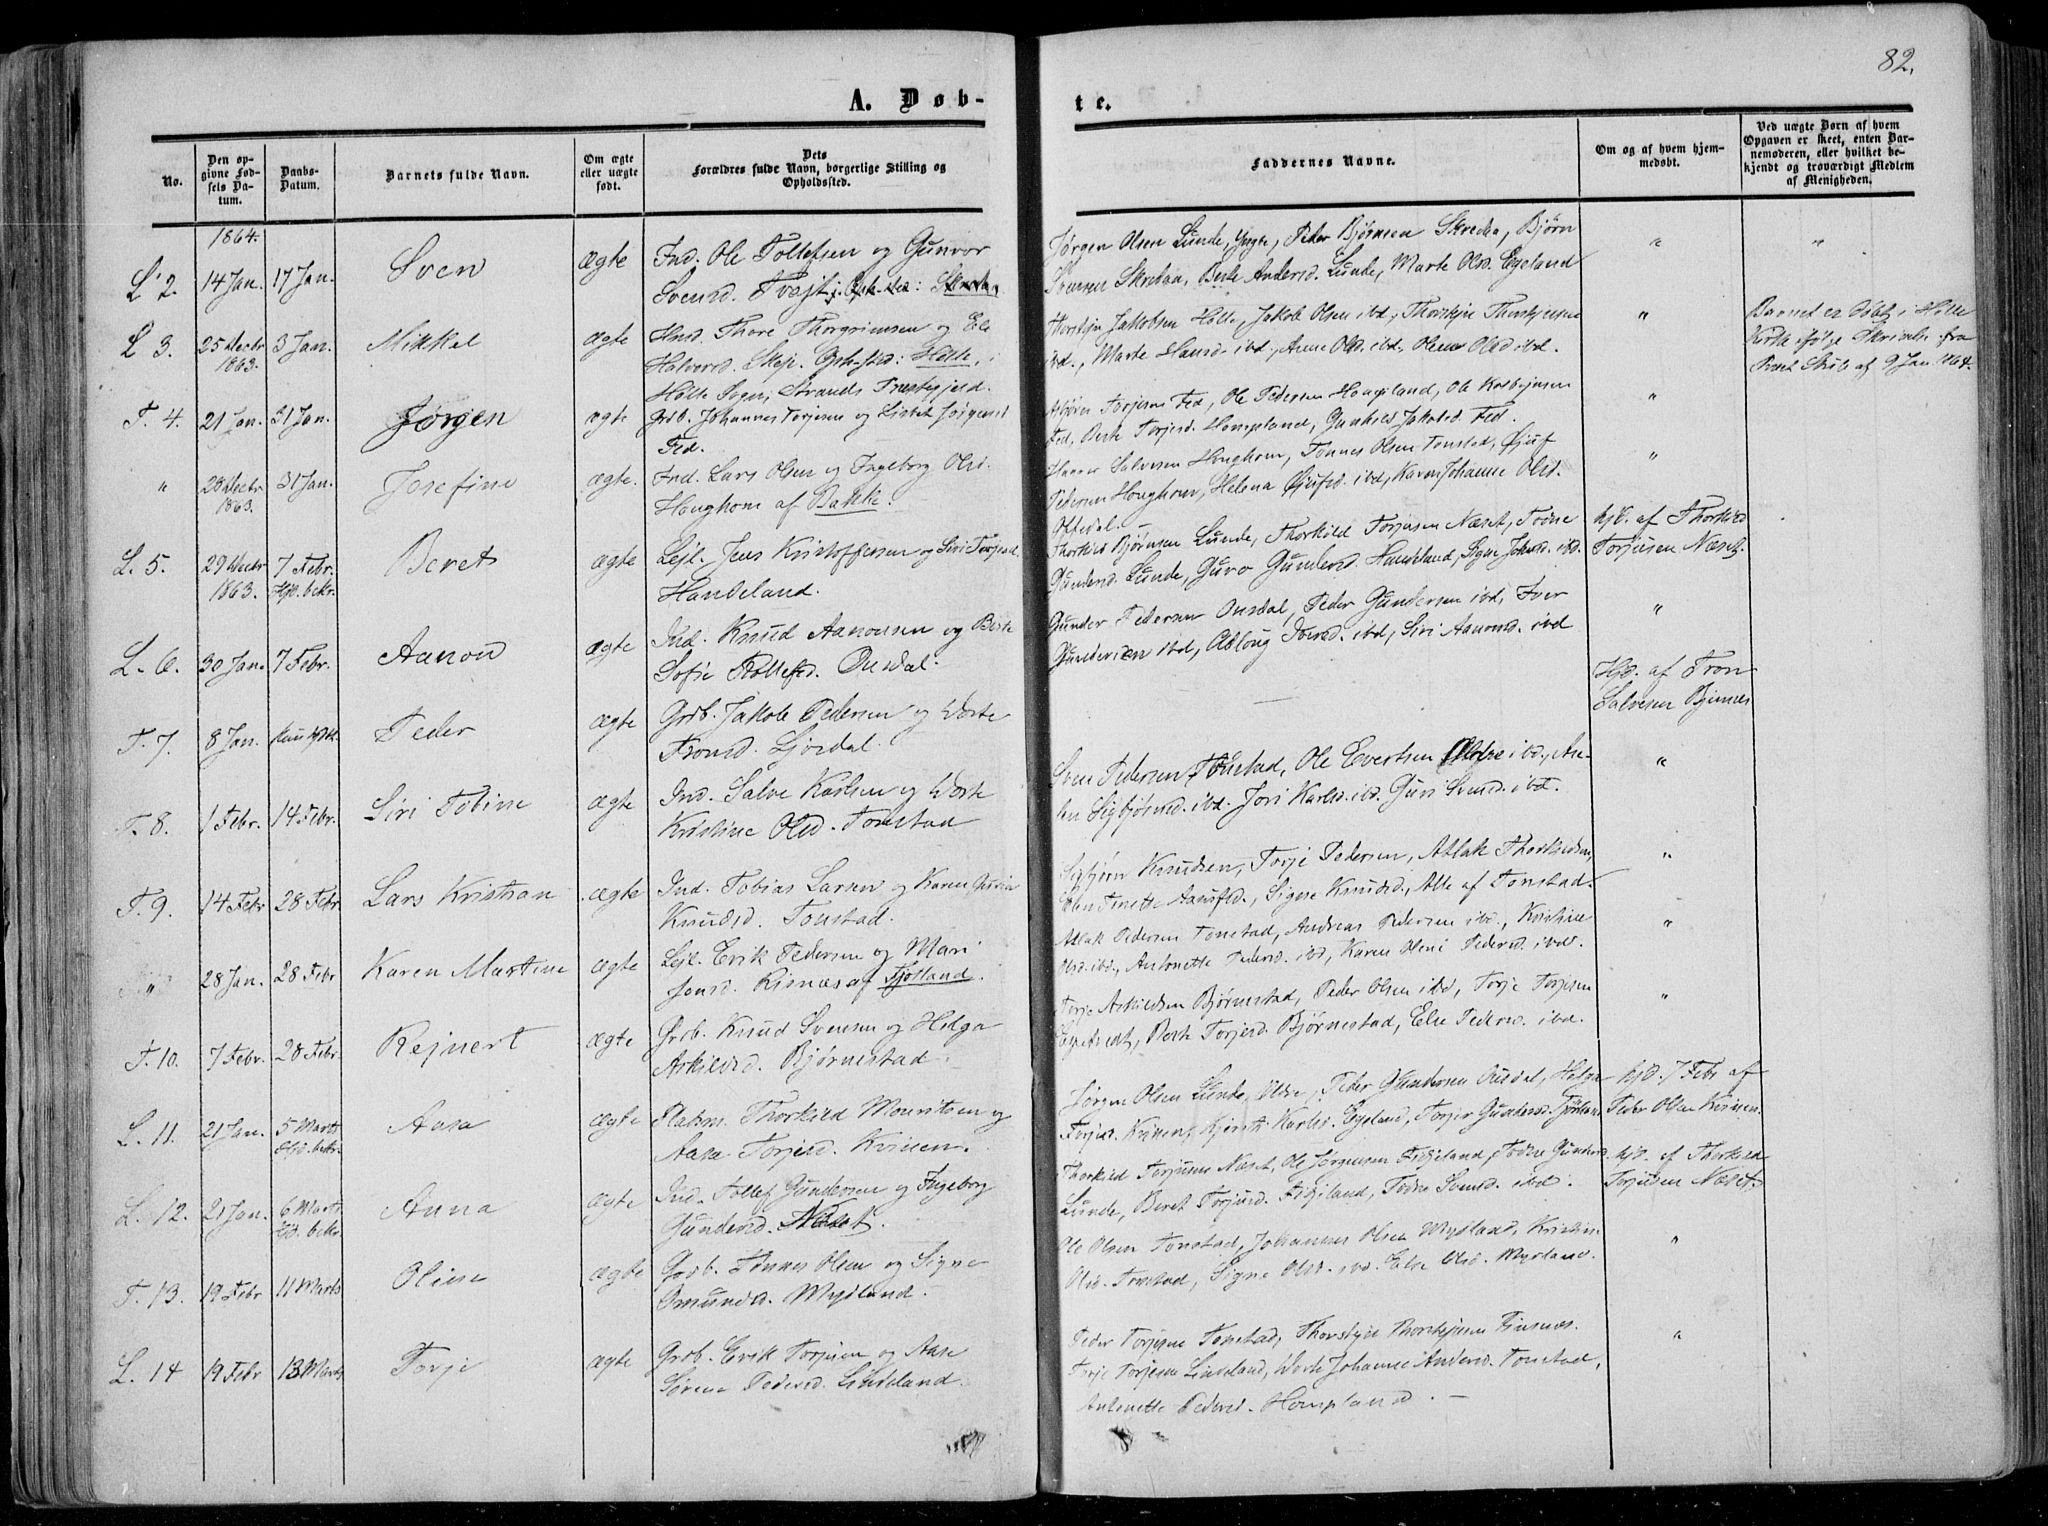 82.
A. Døb-
te.
No.
Den op-
givne Fød-
sels Da-
tum.
Daabs-
Datum.
Barnets fulde Navn.
Om ægte
eller uægte
født.
Dets
Forældres fulde Navn, borgerlige Stilling og
Opholdssted.
Faddernes Navne.
Om og af hvem hjem-
medøbt.
Ved uægte Børn af hvem
Opgaven er skeet, enten Bar-
nemoderen, eller hvilket be-
kjendt og troværdigt Medlem
af Menigheden.
1864.
L 2. 14 Jan. 17 Jan. Sven ægte Ind. Ole Tollefsen og Gunvor
Svensd.
Jørgen Olsen Lunde, Yngre, Peder Bjørnsen Skredaa, Bjørn
Svensen Skredaa, Berte Andersd. Lunde, Marte Olsd. Egeland
" "
L 3. 25 Decbr 3 Jan. Mikkel ægte Ind. Thore Thorgrimsen og Ele
1863. Halvorsd. Opholdsted: Hølle, i
Hølle Sogn, Strands Præstegjeld.
Thorstein Jakobsen Hølle, Jakob Olsen ibd.,
ibd., Marte Hansd. ibd., Anne Olsd. ibd., Olene Olsd. ibd.
"
Barnet er døbt i Hølle
Kirke ifølge Skrivelse fra
Præst af 9 Jan. 1864.
T. 4. 21 Jan. 31 Jan. Jørgen ægte Grdb. Johannes Torjesen og Lisbet Jørgensd
Fed.
Asbjørn Torjesen Fed, Ole Pedersen Hompland, Ole
Fed, Berte Torjesd. Hompland, Gunhild Jakobsd. Fed.
"
" 28 Decbr 31 Jan. Josefine ægte. Ind. Lars Olsen og Ingeborg Olsd.
1863. Honghom af Bakke.
Salvesen Honghom, Tønnes Olsen Tonstad, Øjuf
Pedersen Honghom, Helena Øjufsd. ibd, Karen Johanne Olsd.
Offedal.
"
L. 5. 29 Decbr 7 Febr. Beret ægte Lejl. Jens Kristoffersen og Siri Torjesd.
1863. Hjd. bekr. Handeland.
Thorkild Bjørnsen Lunde, Thorkild Torjusen Næset, Todne
Gundersd. Lunde, Guro Gundersd. Handeland, Signe Johnsd. ibd.
hjd. af Thorkild
Torjusen Næset.
L. 6. 30 Jan. 7 Febr. Aanon ægte Ind. Knud Aanonsen og Berte
Sofie Rollefsd. Ousdal.
Gunder Pedersen Ousdal, Peder Gundersen ibd, Iver
Gundersen ibd, Abloug Iversd. ibd, Siri Aanonsd. ibd
"
T. 7. 8 Jan. Peder ægte Grdb. Jakob Pedersen og Dorte
Tronsd. Ljosdal.
Hjd. af Tron
Salvesen
T. 8. 1 Febr. 14 Febr. Siri Tobine ægte Ind. Salve Karlsen og Dorte
Kristine Olsd. Tonstad
Sven Pedersen Tonstad, Ole Evertsen ibd., An-
Sigbjørnsd. ibd. Jori Karlsd. ibd. Guri Svensd. ibd.
"
T. 9. 14 Febr 28 Febr. Lars Kristian ægte Ind. Tobias Larsen og Karen Guria
Knudsd. Tonstad.
Sigbjørn Knudsen, Torje Pedersen, Atlak Thorkildsen,
Elen Tonette, Signe Knudsd., Alle af Tonstad.
"
" 28 Jan. 28 Febr Karen Martine ægte Lejl. Erik Pedersen og Mari
Jonsd. Risnæs af Fjotland.
Atlak Pedersen Tonstad, Andreas Pedersen ibd, Kristine
Olsd. ibd., Antonette Pedersd. ibd, Karen Oleni Pedersd. ibd.
"
T. 10. 7 Febr. 28 Febr. Rejnert ægte Grdb. Knud Svensen og Helga
Askildsd. Bjørnestad
Torje Askildsen Bjørnestad, Peder Olsen ibd, Torje Torjesen
Berte Torjesd. Bjørnestad, Else Pedersd. ibd.
"
L. 11. 21 Jan. 5 Marts Aasa ægte Pladsm. Thorkild Mouritsen og
Hjd. bekr. Aasa Torjesd. Kvinen.
Jørgen Olsen Lunde, Ældre, Peder Gundersen Ousdal, Helga
Torjesd. Kvinen, Kjersti Karlsd. Egeland, Torjer Gundersd.
hjd. 7 Febr af
Peder Olsen Kvinen.
L. 12. 21 Jan. 6 Marts Anna ægte Ind. Tollef Gundersen og Ingeborg
Hjd. bekr. Gundersd. Næset.
Thorkild Torjusen Næset, Ole Jørgensen Fidjeland, Todne Gundersd.
Lunde, Beret Torjusd. Fidjeland, Todne Svensd. ibd.
hjd. af Thorkild
Torjusen Næset.
T. 13. 19 Febr 11 Marts Oline ægte Grdb. Tønnes Olsen og Signe
Omundsd. Mydland.
Ole Olsen Tonstad, Johannes Olsen Mydland, Kristin
Olsd. Tonstad, Signe Olsd. ibd. Else Olsd. Mydland.
"
L. 14 19 Febr 13 Marts Torje ægte Grdb. Erik Torjesen og Aase
Serene Pedersd. Lindeland.
Peder Torjesen Tonstad, Thorstein
Torje Torjesen Lindeland, Dorte Johanne Andersd. Tonstad,
Antonette Pedersd. Hompland. —
"